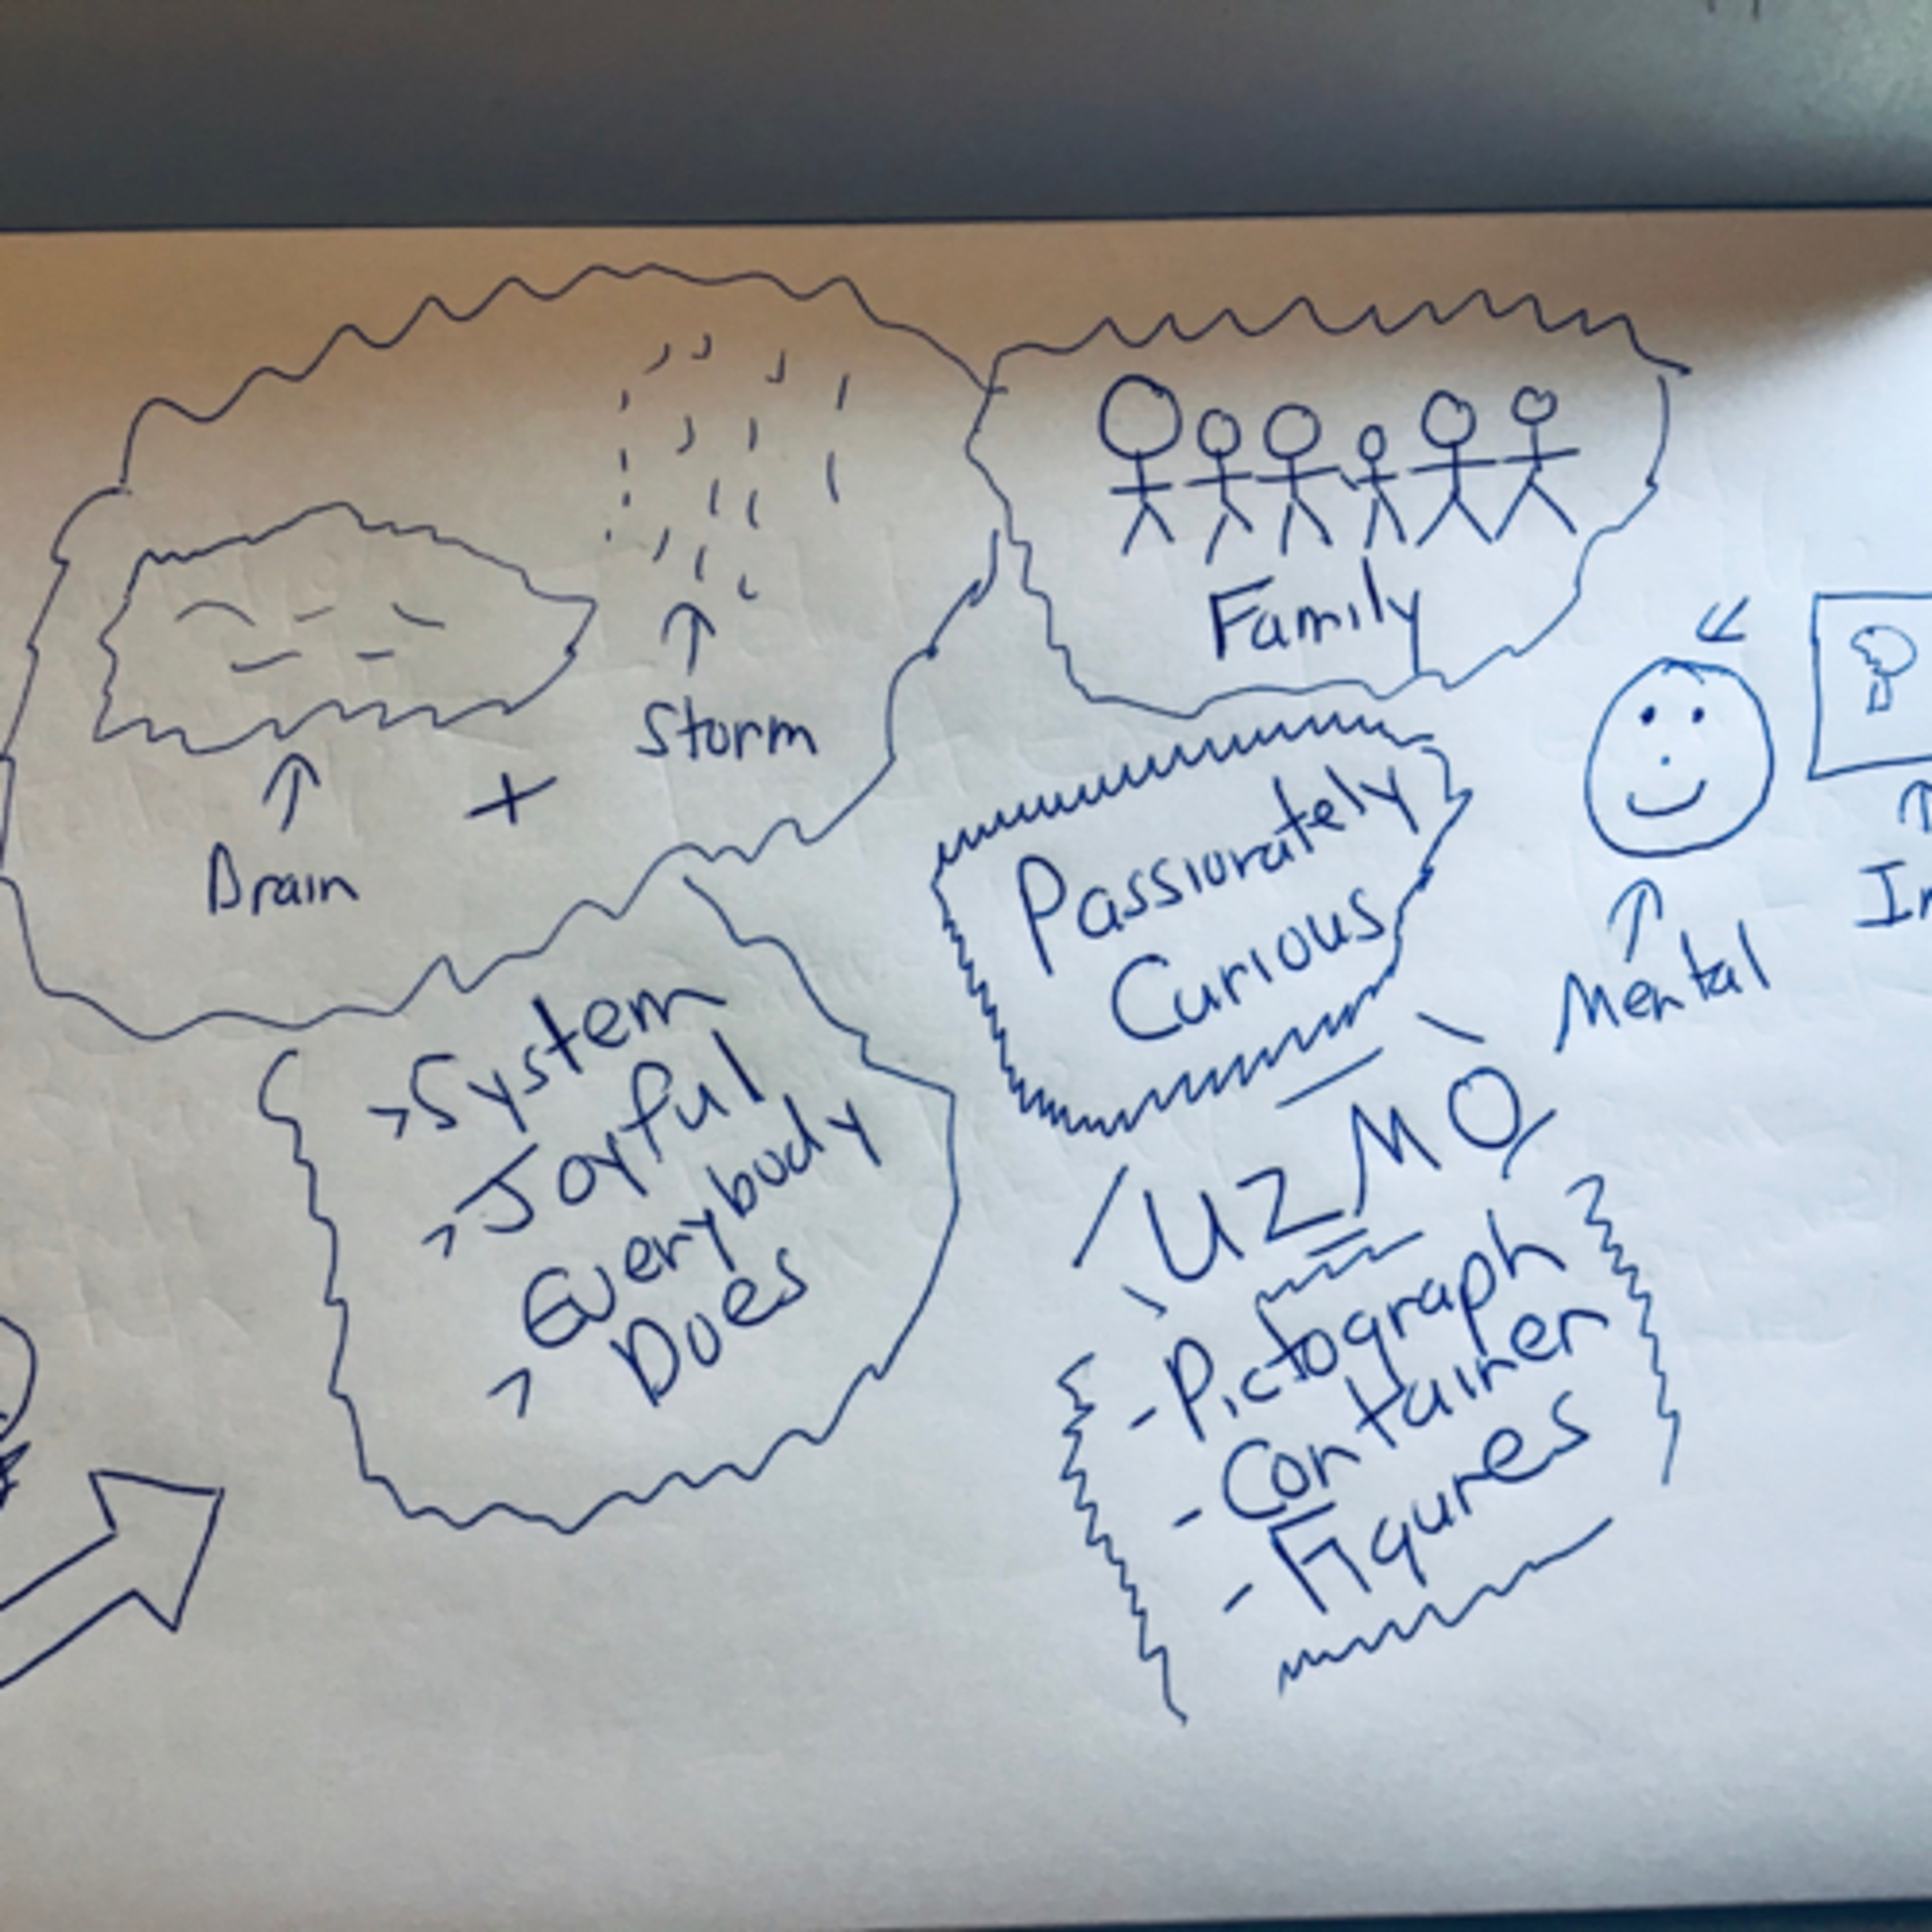 Storm
+
Brain
Family
Passionately
Curious
Mental
>System
>Joyful
Everybody
> Does
UZMO
-Pictograph
-Container
-Figures